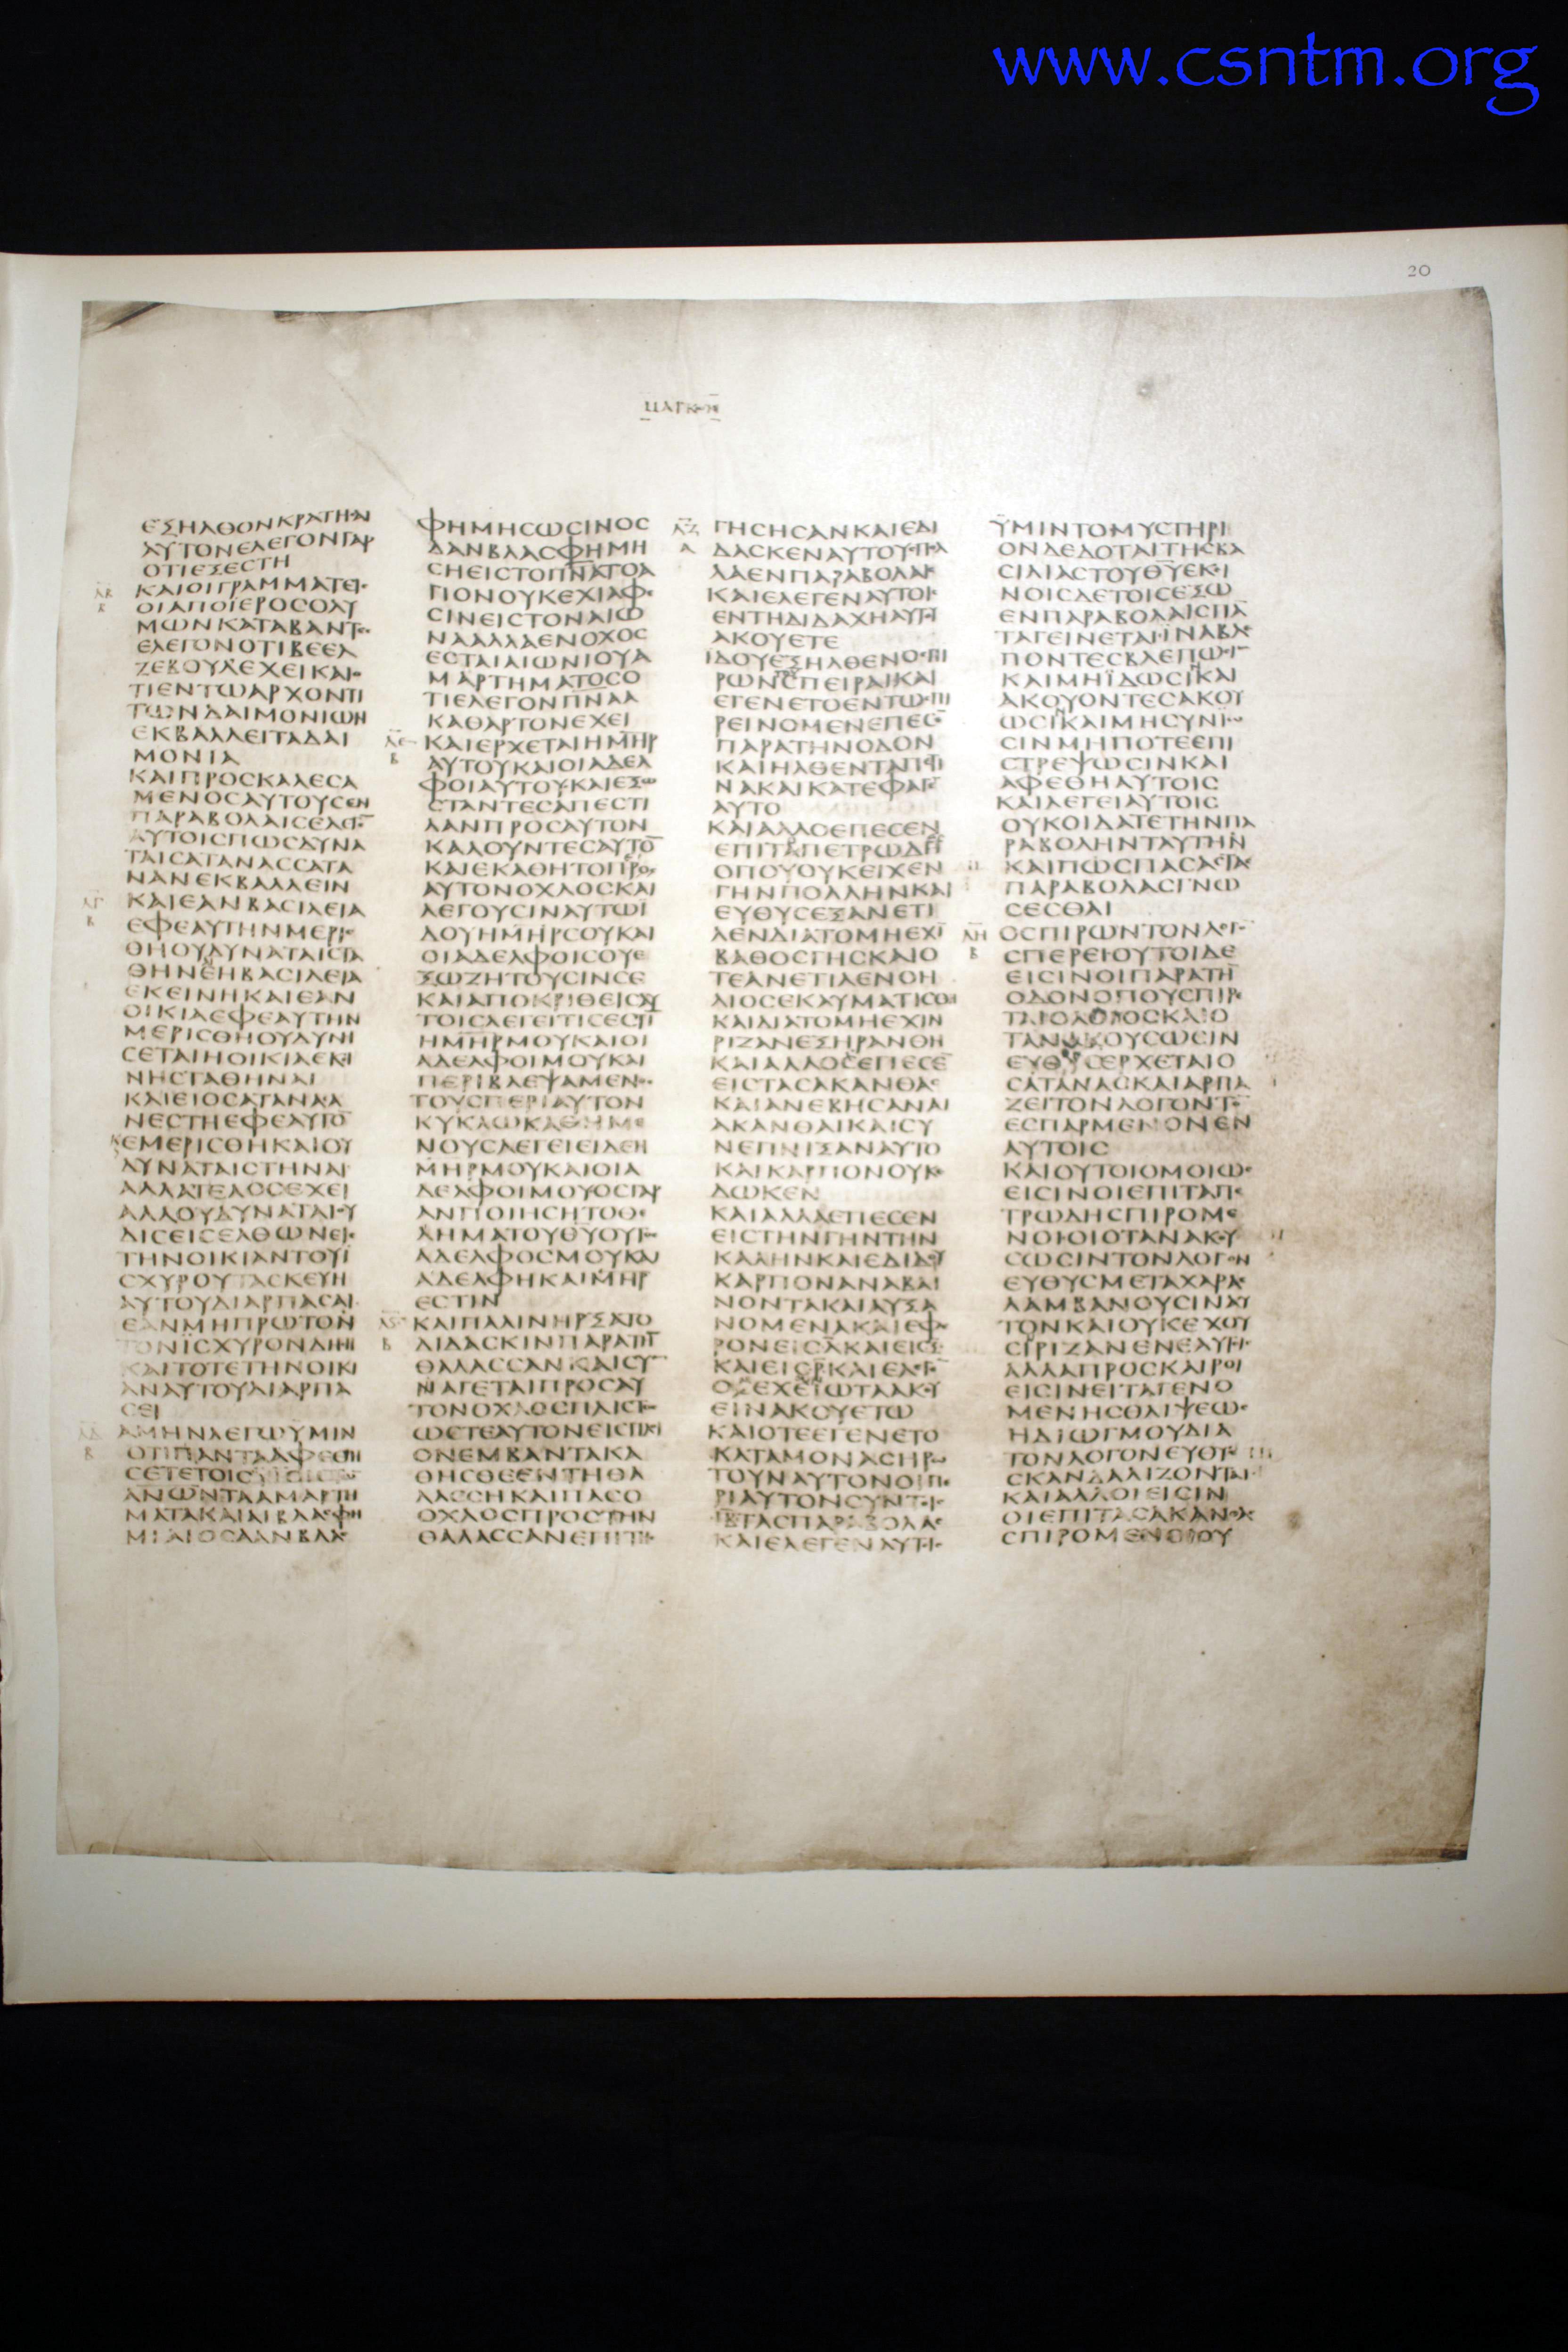 www.csntm.org
20
ΕΞΗΛΘΟΝΚΡΑΤΗΣΑΙ
ΑΥΤΟΝΕΛΕΓΟΝΓΑΡ
ΟΤΙΕΞΕΣΤΗ
ΚΑΙΟΙΓΡΑΜΜΑΤΕΙϹ
ΟΙΑΠΟΪΕΡΟϹΟΛΥ
ΜΩΝΚΑΤΑΒΑΝΤΕϹ
ΕΛΕΓΟΝΟΤΙΒΕΕΛ
ΖΕΒΟΥΛΕΧΕΙΚΑΙΟ
ΤΙΕΝΤΩΑΡΧΟΝΤΙ
ΤΩΝΔΑΙΜΟΝΙΩΝ
ΕΚΒΑΛΛΕΙΤΑΔΑΙ
ΜΟΝΙΑ
ΚΑΙΠΡΟϹΚΑΛΕϹΑ
ΜΕΝΟϹΑΥΤΟΥϹΕΝ
ΠΑΡΑΒΟΛΑΙϹΕΛΕΓΕ̅
ΑΥΤΟΙϹΠΩϹΔΥΝΑ
ΤΑΙϹΑΤΑΝΑϹϹΑΤΑ
ΝΑΝΕΚΒΑΛΛΕΙΝ
ΚΑΙΕΑΝΒΑϹΙΛΕΙΑ
ΕΦΕΑΥΤΗΝΜΕΡΙϹ
ΘΗΟΥΔΥΝΑΤΑΙϹΤΑ
ΘΗΝΕΗΒΑϹΙΛΕΙΑ
ΕΚΕΙΝΗΚΑΙΕΑΝ
ΟΙΚΙΑΕΦΕΑΥΤΗΝ
ΜΕΡΙϹΘΗΟΥΔΥΝΗ
ϹΕΤΑΙΗΟΙΚΙΑΕΚΙ
ΝΗϹΤΑΘΗΝΑΙ
ΚΑΙΕΙΟϹΑΤΑΝΑϹΑ
ΝΕϹΤΗΕΦΕΑΥΤΟ̅
ΕΜΕΡΙϹΘΗΚΑΙΟΥ
ΔΥΝΑΤΑΙϹΤΗΝΑΙ
ΑΛΛΑΤΕΛΟϹΕΧΕΙ
ΑΛΛΟΥΔΥΝΑΤΑΙΟΥ
ΔΙϹΕΙϹΕΛΘΩΝΕΙϹ
ΤΗΝΟΙΚΙΑΝΤΟΥΪ
ϹΧΥΡΟΥΤΑϹΚΕΥΗ
ΑΥΤΟΥΔΙΑΡΠΑϹΑΙ
ΕΑΝΜΗΠΡΩΤΟΝ
ΤΟΝΪϹΧΥΡΟΝΔΗϹΗ
ΚΑΙΤΟΤΕΤΗΝΟΙΚΙ
ΑΝΑΥΤΟΥΔΙΑΡΠΑ
ϹΕΙ
ΑΜΗΝΛΕΓΩΫΜΙΝ
ΟΤΙΠΑΝΤΑΑΦΕΘΗ
ϹΕΤΕΤΟΙϹΥΙΟΙϹΤΩ̅
ΑΝΩΝΤΑΑΜΑΡΤΗ
ΜΑΤΑΚΑΙΑΙΒΛΑϹΦΗ
ΜΙΑΙΟϹΑΑΝΒΛΑϹ
ΦΗΜΗϹΩϹΙΝΟϹ
ΔΑΝΒΛΑϹΦΗΜΗ
ϹΗΕΙϹΤΟΠ̅Ν̅Α̅ΤΟΑ
ΓΙΟΝΟΥΚΕΧΙΑΦΕ
ϹΙΝΕΙϹΤΟΝΑΙΩ
ΝΑΑΛΛΑΕΝΟΧΟϹ
ΕϹΤΑΙΑΙΩΝΙΟΥΑ
ΜΑΡΤΗΜΑΤΟϹΟ
ΤΙΕΛΕΓΟΝΠ̅Ν̅Α̅Α
ΚΑΘΑΡΤΟΝΕΧΕΙ
ΚΑΙΕΡΧΕΤΑΙΗΜ̅Η̅Ρ̅
ΑΥΤΟΥΚΑΙΟΙΑΔΕΛ
ΦΟΙΑΥΤΟΥΚΑΙΕΞΩ
ϹΤΑΝΤΕϹΑΠΕϹΤΙ
ΛΑΝΠΡΟϹΑΥΤΟΝ
ΚΑΛΟΥΝΤΕϹΑΥΤΟ̅
ΚΑΙΕΚΑΘΗΤΟΠΡΟϹ
ΑΥΤΟΝΟΧΛΟϹΚΑΙ
ΛΕΓΟΥϹΙΝΑΥΤΩΙ
ΔΟΥΗΜ̅Η̅Ρ̅ϹΟΥΚΑΙ
ΟΙΑΔΕΛΦΟΙϹΟΥΕ
ΞΩΖΗΤΟΥϹΙΝϹΕ
ΚΑΙΑΠΟΚΡΙΘΕΙϹΑΥ
ΤΟΙϹΛΕΓΕΙΤΙϹΕϹΤΙ
ΗΜ̅Η̅Ρ̅ΜΟΥΚΑΙΟΙ
ΑΔΕΛΦΟΙΜΟΥΚΑΙ
ΠΕΡΙΒΛΕΨΑΜΕΝΟϹ
ΤΟΥϹΠΕΡΙΑΥΤΟΝ
ΚΥΚΛΩΚΑΘΗΜΕ
ΝΟΥϹΛΕΓΕΙΕΙΔΕΗ
Μ̅Η̅Ρ̅ΜΟΥΚΑΙΟΙΑ
ΔΕΛΦΟΙΜΟΥΟϹΓΑΡ
ΑΝΠΟΙΗϹΗΤΟΘΕ
ΛΗΜΑΤΟΥΘ̅Υ̅ΟΥΤΟϹ
ΑΔΕΛΦΟϹΜΟΥΚΑΙ
ΑΔΕΛΦΗΚΑΙΜ̅Η̅Ρ̅
ΕϹΤΙΝ
ΚΑΙΠΑΛΙΝΗΡΞΑΤΟ
ΔΙΔΑϹΚΙΝΠΑΡΑΤΗ̅
ΘΑΛΑϹϹΑΝΚΑΙϹΥ̅
ΑΓΕΤΑΙΠΡΟϹΑΥ
ΤΟΝΟΧΛΟϹΠΛΙϹΤΟϹ
ΩϹΤΕΑΥΤΟΝΕΙϹΠΛΟΙ
ΟΝΕΜΒΑΝΤΑΚΑ
ΘΗϹΘΕΕΝΤΗΘΑ
ΛΑϹϹΗΚΑΙΠΑϹΟ
ΟΧΛΟϹΠΡΟϹΤΗΝ
ΘΑΛΑϹϹΑΝΕΠΙΤΗϹ
ΓΗϹΗϹΑΝΚΑΙΕΔΙ
ΔΑϹΚΕΝΑΥΤΟΥϹΠΑ
ΛΑΕΝΠΑΡΑΒΟΛΑΙϹ
ΚΑΙΕΛΕΓΕΝΑΥΤΟΙϹ
ΕΝΤΗΔΙΔΑΧΗΑΥΤΟΥ
ΑΚΟΥΕΤΕ
ΙΔΟΥΕΞΗΛΘΕΝΟϹΠΙ
ΡΩΝϹΠΕΙΡΑΙΚΑΙ
ΕΓΕΝΕΤΟΕΝΤΩϹΠΙ
ΡΕΙΝΟΜΕΝΕΠΕϹΕ̅
ΠΑΡΑΤΗΝΟΔΟΝ
ΚΑΙΗΛΘΕΝΤΑΠΕΤΙ
ΝΑΚΑΙΚΑΤΕΦΑΓΕ̅
ΑΥΤΟ
ΚΑΙΑΛΛΟΕΠΕϹΕΝ
ΕΠΙΤΑΠΕΤΡΩΔΗ
ΟΠΟΥΟΥΚΕΙΧΕΝ
ΓΗΝΠΟΛΛΗΝΚΑΙ
ΕΥΘΥϹΕΞΑΝΕΤΙ
ΛΕΝΔΙΑΤΟΜΗΕΧΙ̅
ΒΑΘΟϹΓΗϹΚΑΙΟ
ΤΕΑΝΕΤΙΛΕΝΟΗ
ΛΙΟϹΕΚΑΥΜΑΤΙϹΘΗ
ΚΑΙΔΙΑΤΟΜΗΕΧΙΝ
ΡΙΖΑΝΕΞΗΡΑΝΘΗ
ΚΑΙΑΛΛΟΕΠΕϹΕ̅
ΕΙϹΤΑϹΑΚΑΝΘΑϹ
ΚΑΙΑΝΕΒΗϹΑΝΑΙ
ΑΚΑΝΘΑΙΚΑΙϹΥ
ΝΕΠΝΙΞΑΝΑΥΤΟ
ΚΑΙΚΑΡΠΟΝΟΥΚΕ
ΔΩΚΕΝ
ΚΑΙΑΛΛΑΕΠΕϹΕΝ
ΕΙϹΤΗΝΓΗΝΤΗΝ
ΚΑΛΗΝΚΑΙΕΔΙΔΟΥ
ΚΑΡΠΟΝΑΝΑΒΑΙ
ΝΟΝΤΑΚΑΙΑΥΞΑ
ΝΟΜΕΝΑΚΑΙΕΦΕ
ΡΟΝΕΙϹΛΚΑΙΕΙϹΞ
ΚΑΙΕΙϹΡΚΑΙΕΛΕΓΕ̅
ΕΙΝΑΚΟΥΕΤΩ
ΚΑΙΟΤΕΕΓΕΝΕΤΟ
ΚΑΤΑΜΟΝΑϹΗΡΩ
ΤΟΥΝΑΥΤΟΝΟΙΠΕ
ΡΙΑΥΤΟΝϹΥΝΤΟΙϹ
ΙΒΤΑϹΠΑΡΑΒΟΛΑϹ
ΚΑΙΕΛΕΓΕΝΑΥΤΟΙϹ
ΫΜΙΝΤΟΜΥϹΤΗΡΙ
ΟΝΔΕΔΟΤΑΙΤΗϹΒΑ
ϹΙΛΙΑϹΤΟΥΘ̅Υ̅ΕΚΙ
ΝΟΙϹΔΕΤΟΙϹΕΞΩ
ΕΝΠΑΡΑΒΟΛΑΙϹΠΑ̅
ΤΑΓΕΙΝΕΤΑΙΪΝΑΒΛΕ
ΠΟΝΤΕϹΒΛΕΠΩϹΙ̅
ΚΑΙΜΗΪΔΩϹΙΚΑΙ
ΑΚΟΥΟΝΤΕϹΑΚΟΥ
ΩϹΙΚΑΙΜΗϹΥΝΙΩ
ϹΙΝΜΗΠΟΤΕΕΠΙ
ϹΤΡΕΨΩϹΙΝΚΑΙ
ΑΦΕΘΗΑΥΤΟΙϹ
ΚΑΙΛΕΓΕΙΑΥΤΟΙϹ
ΟΥΚΟΙΔΑΤΕΤΗΝΠΑ
ΡΑΒΟΛΗΝΤΑΥΤΗΝ
ΚΑΙΠΩϹΠΑϹΑϹΤΑϹ
ΠΑΡΑΒΟΛΑϹΓΝΩ
ϹΕϹΘΑΙ
ΟϹΠΙΡΩΝΤΟΝΛΟΓΟ̅
ϹΠΕΡΕΙΟΥΤΟΙΔΕ
ΕΙϹΙΝΟΙΠΑΡΑΤΗ̅
ΟΔΟΝΟΠΟΥϹΠΙΡΕ
ΤΑΙΟΛΟΓΟϹΚΑΙΟ
ΤΑΝΑΚΟΥϹΩϹΙΝ
ΕΥΘΥϹΕΡΧΕΤΑΙΟ
ϹΑΤΑΝΑϹΚΑΙΑΡΠΑ
ΖΕΙΤΟΝΛΟΓΟΝΤΟ̅
ΕϹΠΑΡΜΕΝΟΝΕΝ
ΑΥΤΟΙϹ
ΚΑΙΟΥΤΟΙΟΜΟΙΩϹ
ΕΙϹΙΝΟΙΕΠΙΤΑΠΕ
ΤΡΩΔΗϹΠΙΡΟΜΕ
ΝΟΙΟΙΟΤΑΝΑΚΟΥ
ϹΩϹΙΝΤΟΝΛΟΓΟΝ
ΕΥΘΥϹΜΕΤΑΧΑΡΑϹ
ΛΑΜΒΑΝΟΥϹΙΝΑΥ
ΤΟΝΚΑΙΟΥΚΕΧΟΥ
ϹΙΡΙΖΑΝΕΝΕΑΥΤΟΙϹ
ΑΛΛΑΠΡΟϹΚΑΙΡΟΙ
ΕΙϹΙΝΕΙΤΑΓΕΝΟ
ΜΕΝΗϹΘΛΙΨΕΩϹ
ΗΔΙΩΓΜΟΥΔΙΑ
ΤΟΝΛΟΓΟΝΕΥΘΥϹ
ϹΚΑΝΔΑΛΙΖΟΝΤΑΙ
ΚΑΙΑΛΛΟΙΕΙϹΙΝ
ΟΙΕΠΙΤΑϹΑΚΑΝΘΑϹ
ϹΠΙΡΟΜΕΝΟΙΟΥ